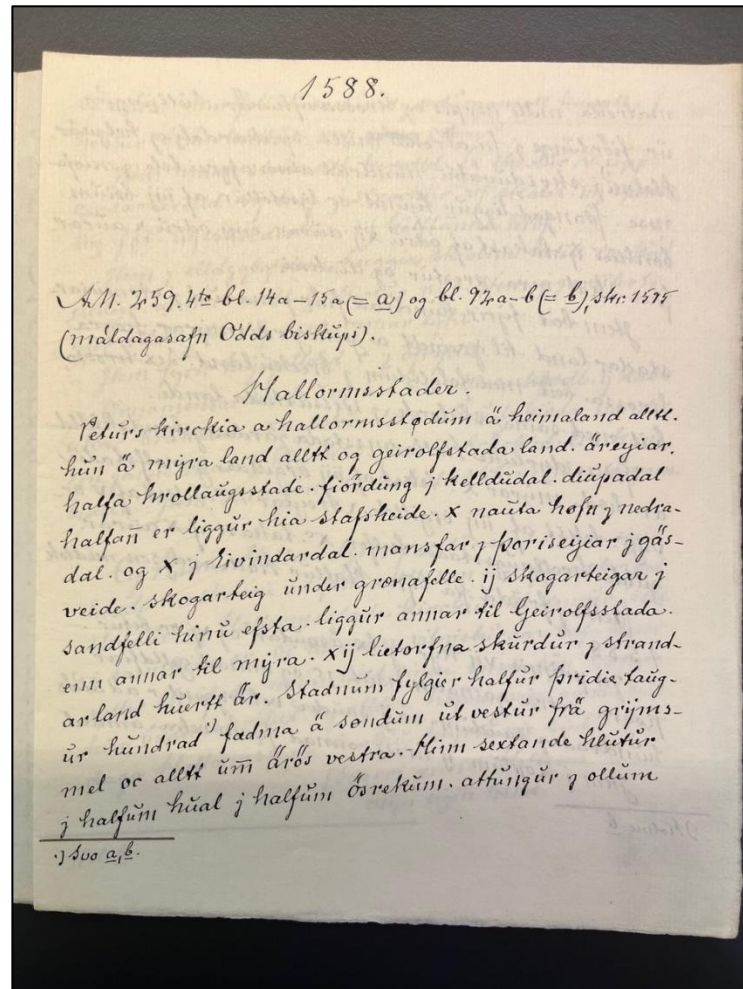 1588.
AM. 259. 4to bl. 14a–15a (= a) og bl. 92a–b (= b), skr. 1595
(máldagasafn Odds biskups).
Hallormsstader.
Peturs kirckia a hallormsstødum ä heimaland alltt.
hun ä myra land alltt og geirolfstada land. äreyiar.
halfa hrollaugsstade. fiördung j kelldudal. diupadal
halfan̄ er liggur hia stafsheide. x nauta høfn j nedra-
dal. og x j Eivindardal. mansfar j þoriseyiar j gäs-
veide. skogarteig under grænafelle. ij skogarteigar j
sandfelli hinu efsta. liggur annar til Geirolfsstada.
enn annar til myra. xij lietorfna skurdur j strand-
arland huertt är. Stadnum fylgier halfur þridie taug-
ur hundrad¹) fadma ä søndum ut vestur frä grijms-
mel oc alltt um̄ ärös vestra. Hinn sextande hlutur
j halfum hual j halfum ösrekum. attungur j ollum
¹) Svo a, b.